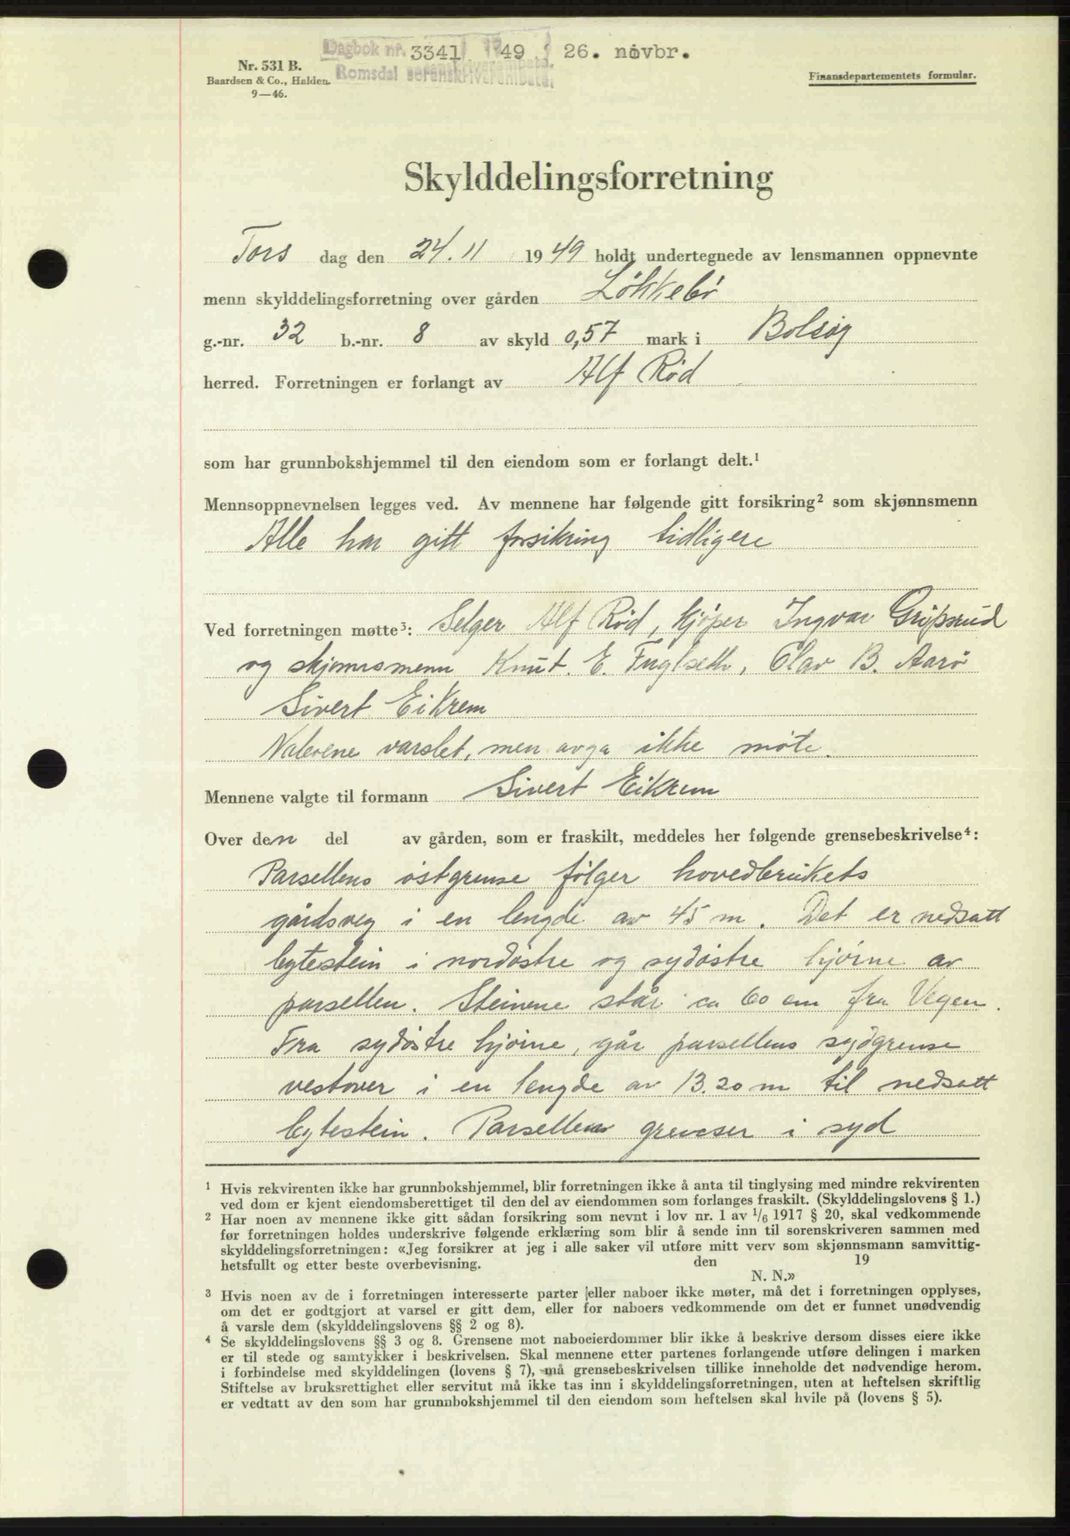 Dagbok nr. 3341 1949 26. novbr.
Romsdal sorenskriverembete.
Nr. 531 B.
Baardsen & Co., Halden.
9—46.
Finansdepartementets formular.
Skylddelingsforretning
Tors dag den 24.11 1949 holdt undertegnede av lensmannen oppnevnte
menn skylddelingsforretning over gården Løkkebø
g.-nr. 32 b.-nr. 8 av skyld 0,57 mark i Bolsøy
herred. Forretningen er forlangt av Alf Rød
som har grunnbokshjemmel til den eiendom som er forlangt delt.¹
Mennsoppnevnelsen legges ved. Av mennene har følgende gitt forsikring² som skjønnsmenn
Alle har gitt forsikring tidligere
Ved forretningen møtte³: Selger Alf Rød, kjøper Ingvar Gripsrud
og skjønnsmenn Knut. E. Fuglseth, Olav B. Aarø
Sivert Eikrem
varslet, men ikke møte.
Mennene valgte til formann Sivert Eikrem
Over den del av gården, som er fraskilt, meddeles her følgende grensebeskrivelse⁴:
Parsellens østgrense følger hovedbrukets
gårdsveg i en lengde av 45 m. Det er nedsatt
bytestein i nordøstre og sydøstre hjørne av
parsellen. Steinene står ca 60 cm fra Vegen.
Fra sydøstre hjørne, går parsellens sydgrense
vestover i en lengde av 13.20 m til nedsatt
bytestein. Parsellen grenser i syd
¹ Hvis rekvirenten ikke har grunnbokshjemmel, blir forretningen ikke å anta til tinglysing med mindre rekvirenten
ved dom er kjent eiendomsberettiget til den del av eiendommen som forlanges fraskilt. (Skylddelingslovens § 1.)
² Har noen av mennene ikke gitt sådan forsikring som nevnt i lov nr. 1 av 1/6 1917 § 20, skal vedkommende
før forretningen holdes underskrive følgende erklæring som blir å sende inn til sorenskriveren sammen med
skylddelingsforretningen: «Jeg forsikrer at jeg i alle saker vil utføre mitt verv som skjønnsmann samvittig-
hetsfullt og etter beste overbevisning. den 19
N. N.»
³ Hvis noen av de i forretningen interesserte parter eller naboer ikke møter, må det i forretningen opplyses,
om det er godtgjort at varsel er gitt dem, eller for naboers vedkommende om det er funnet unødvendig
å varsle dem (skylddelingslovens §§ 2 og 8).
⁴ Se skylddelingslovens §§ 3 og 8. Grensene mot naboeierdommer blir ikke å beskrive dersom disses eiere ikke
er til stede og samtykker i beskrivelsen. Skal mennene etter partenes forlangende utføre delingen i marken
i forbindelse med skylddelingen (lovens § 7), må grensebeskrivelsen tillike inneholde det nødvendige herom.
Stiftelse av bruksrettighet eller servitut må ikke tas inn i skylddelingsforretningen, uten at heftelsen skriftlig
er vedtatt av den som har grunnbokshjemmel til den eiendom som heftelsen skal hvile på (lovens § 5).